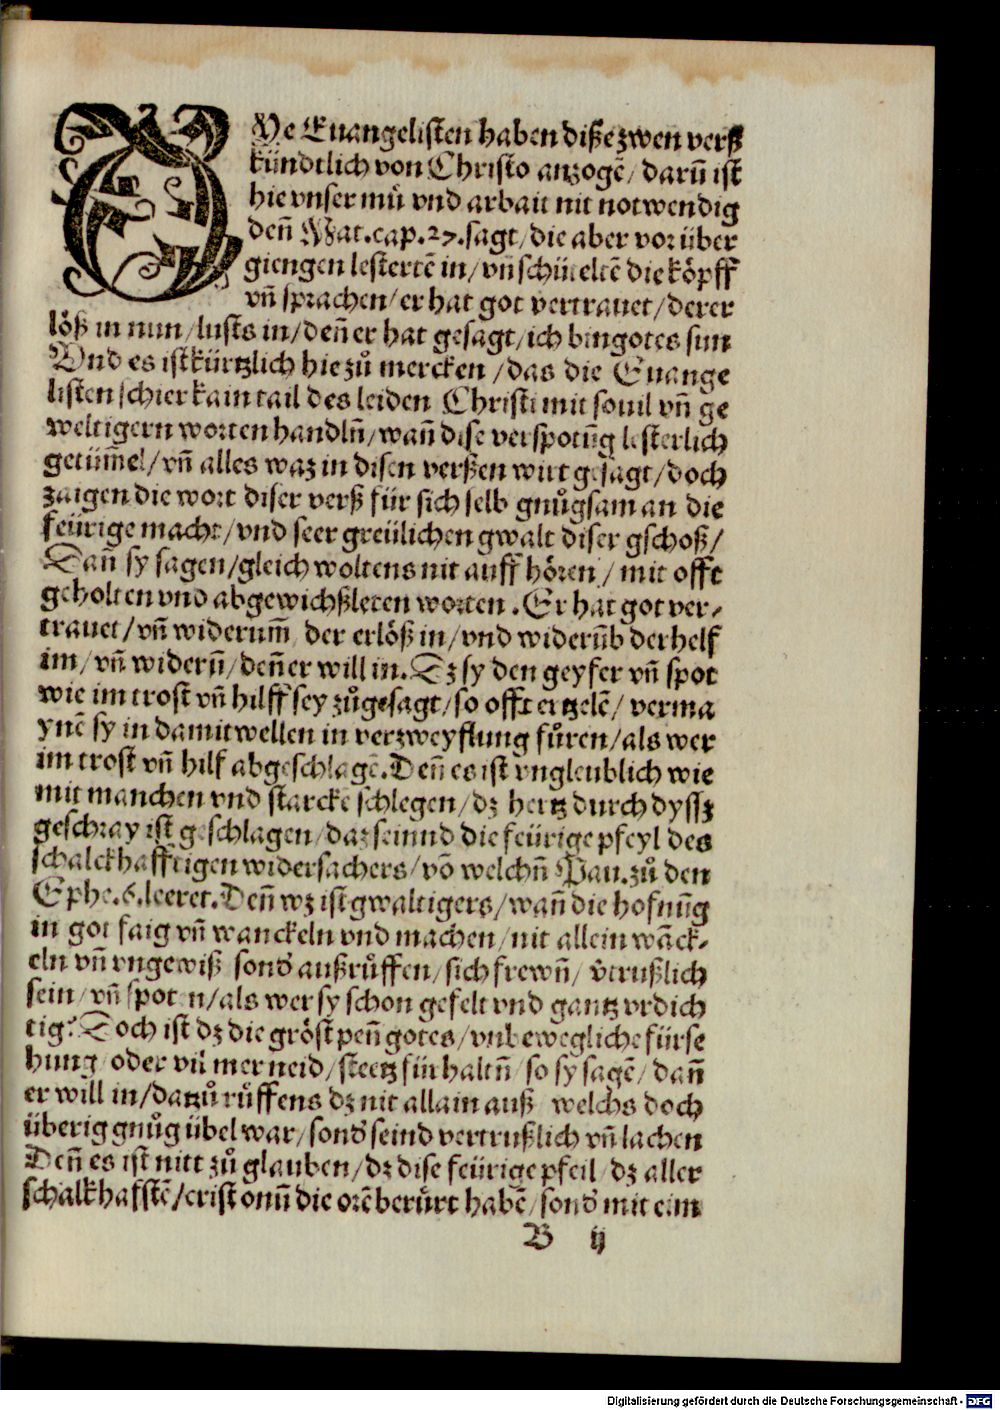 DYe Euangelisten haben diße zwen verß
kündtlich von Christo anzogē / darū ist
hie vnser mů vnd arbait nit notwendig
deñ Mat. cap. 27. sagt / die aber vor über
giengen lestertē in / vñ schütteltē die köpff
vñ sprachen / er hat got vertrauet / der er
löß in nun / lusts in / deñ er hat gesagt / ich bin gotes sun
Vnd es ist kürtzlich hie zů mercken / das die Euange
listen schier kain tail des leiden Christi mit souil vñ ge
weltigern worten handlñ / wañ dise verspotūg lesterlich
getüm̄el / vñ alles waz in disen verßen wirt gesagt / doch
zaigen die wort diser verß für sich selb gnůgsam an die
feürige macht / vnd seer greülichen gwalt diser gschoß /
Dañ sy sagen / gleich woltens nit auff hören / mit offt
geholten vnd abgewichßleten worten . Er hat got ver-
trauet / vñ widerum̄ der erlöß in / vnd widerūb der helf
im / vñ widerū / deñ er will in. Dz sy den geyfer vñ spot
wie im trost vñ hilff sey zůgesagt / so offt ertzelē / verma
ynē sy in damit wellen in verzweyflung fůren / als wer
im trost vñ hilf abgeschlagē. Deñ es ist vngleublich wie
mit manchen vnd starckē schlegen / dz hertz durch dyssz
geschray ist geschlagen / daz seinnd die feürige pfeyl des
schalckhafftigen widersachers / võ welchñ Pau. zů den
Ephe. 6. leeret. Deñ wz ist gwaltigers / wañ die hofnūg
in got faig vñ wanckeln vnd machen / nit allein wāck-
eln vñ vngewiß sonđ außrůffen / sich frewñ / v̄trußlich
sein / vñ spoten / als wer sy schon gefelt vnd gantz vrdich
tig? Doch ist dz die gröst peñ gotes / vnbewegliche fürse
hung / oder vil mer neid / steetz für haltñ / so sy sagē / dañ
er will in / datzů růffens dz nit allain auß welchs doch
überig gnůg übel war / sonđ seind vertrußlich vñ lachen
Deñ es ist nitt zů glauben / dz dise feürige pfeil / dz aller
schalkhafstē / crist onū die orē berůrt habē / sonđ mit eim
B ij
Digitalisierung gefördert durch die Deutsche Forschungsgemeinschaft - DFG